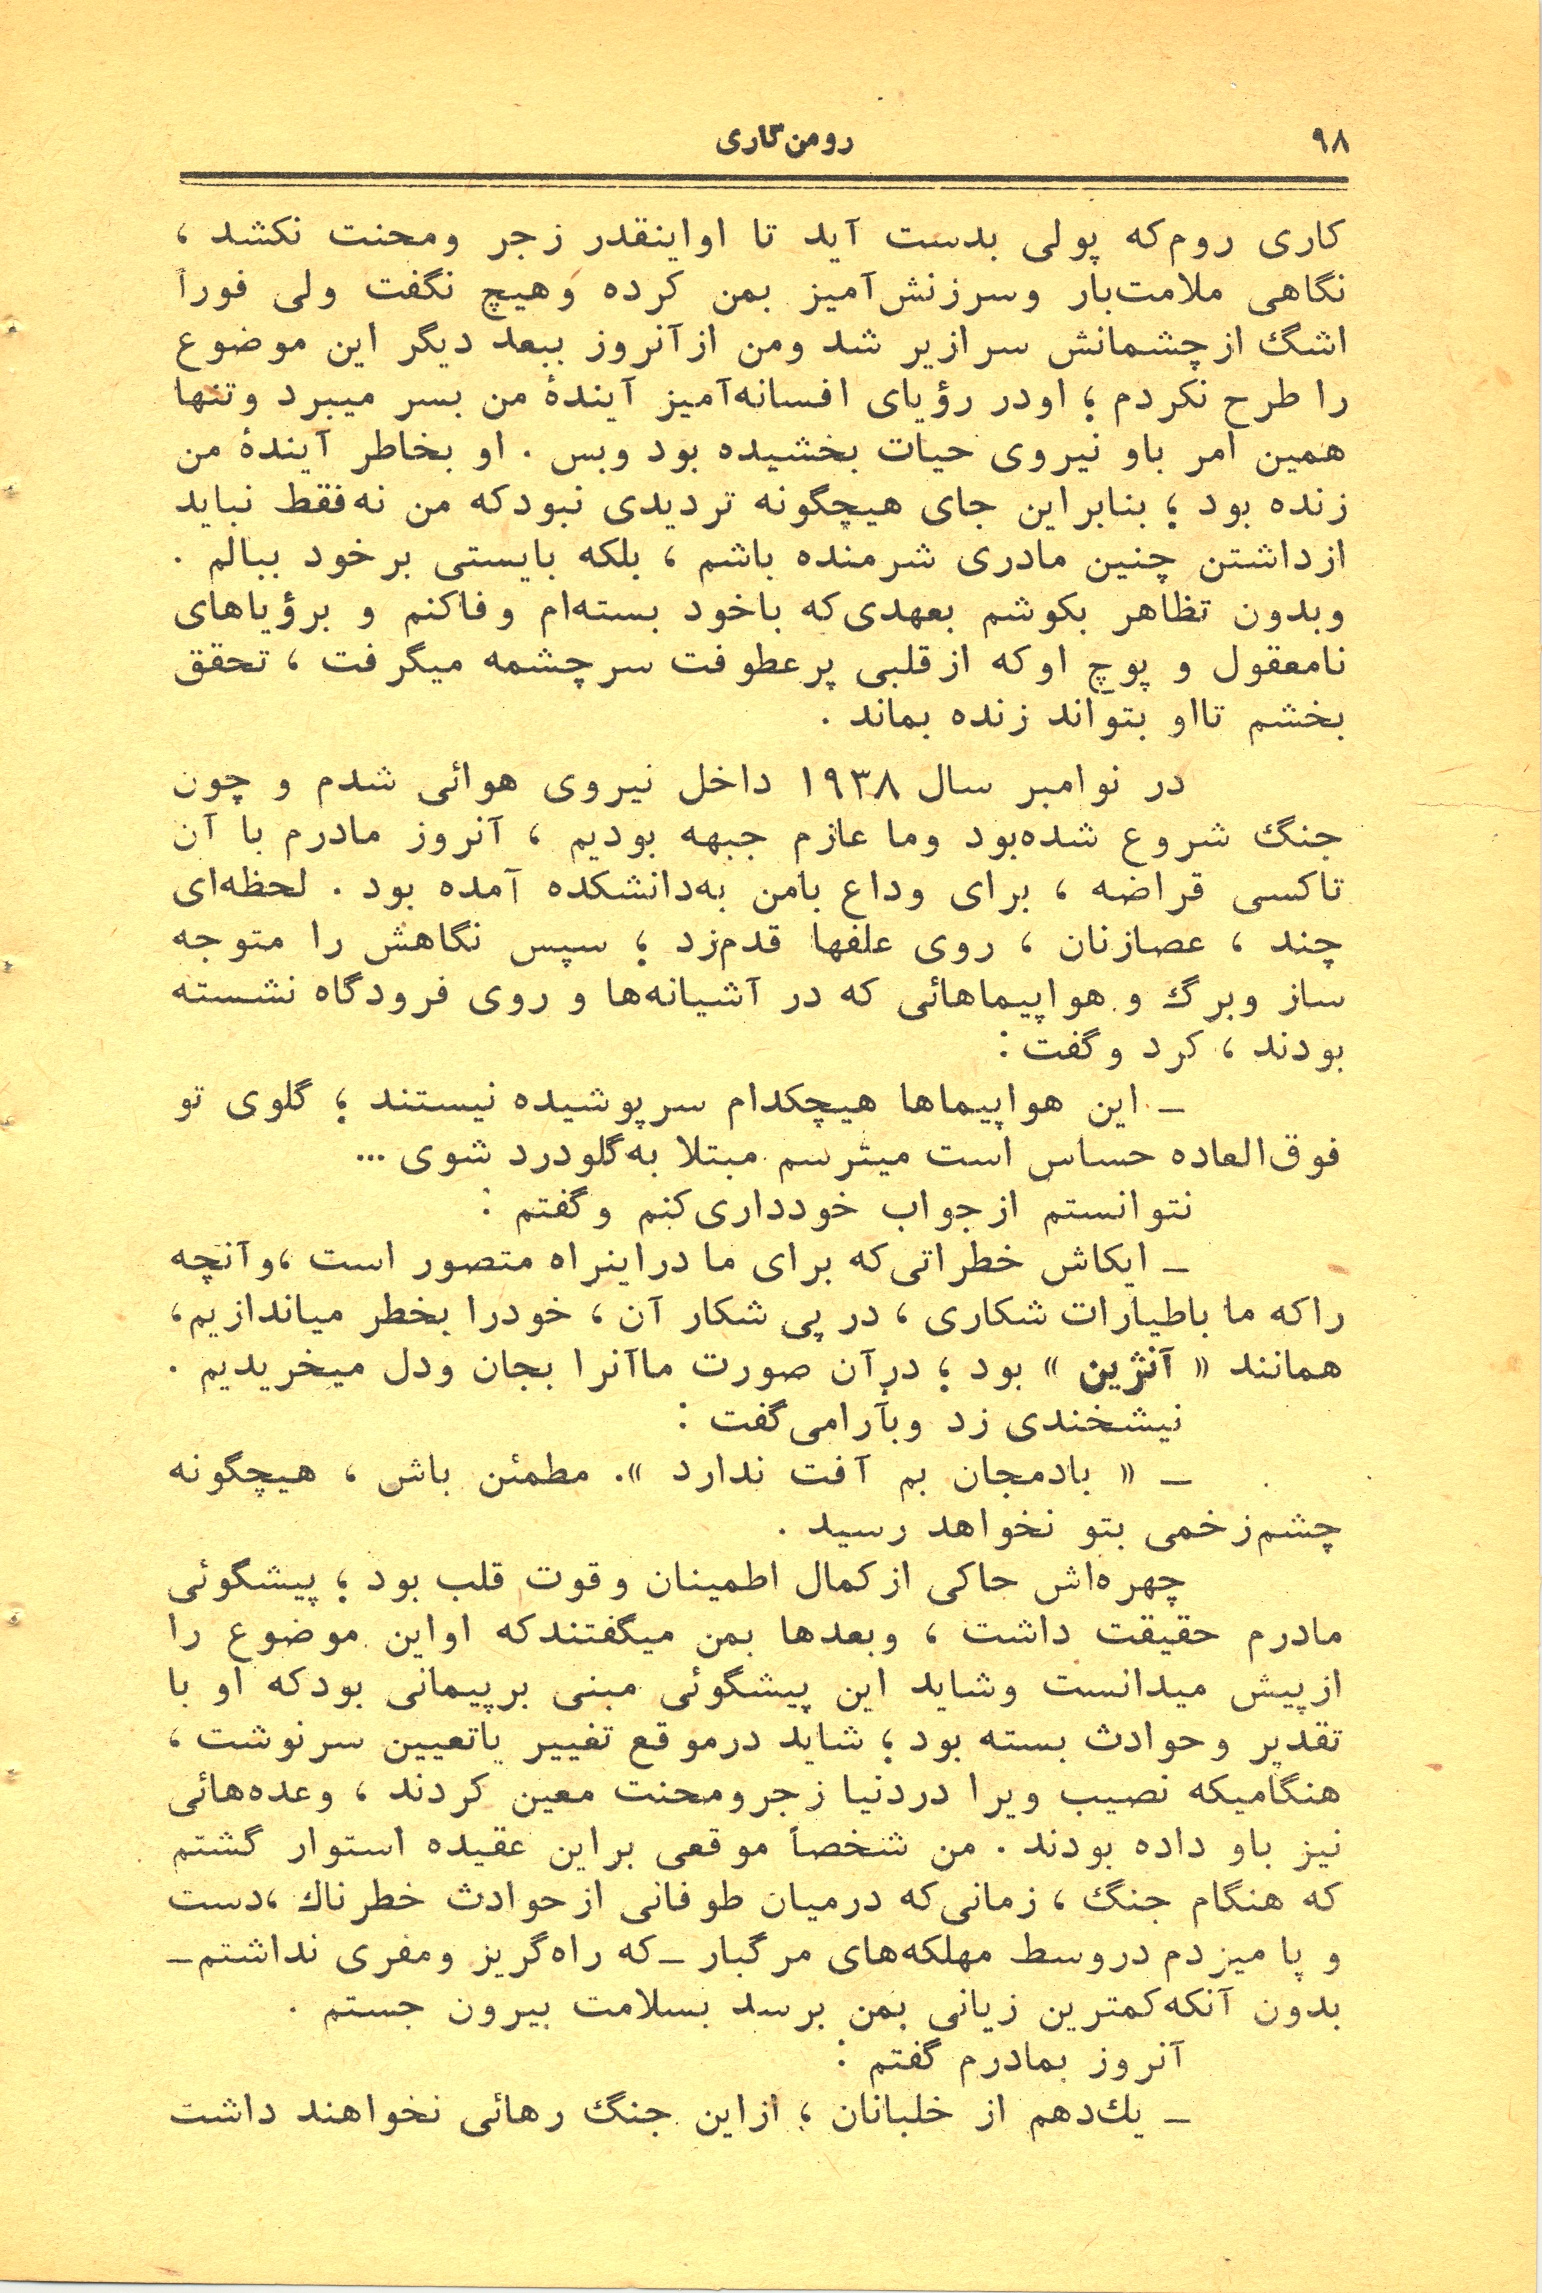 ۹۸
رومن‌گاری
کاری روم‌که پولی بدست آید تا اواینقدر زجر ومحنت نکشد ،
نگاهی ملامت‌بار وسرزنش‌آمیز بمن کرده وهیچ نگفت ولی فوراً
اشگ ازچشمانش سرازیر شد ومن ازآنروز ببعد دیگر این موضوع
را طرح نکردم ؛ اودر رؤیای افسانه‌آمیز آیندهٔ من بسر میبرد وتنها
همین امر باو نیروی حیات بخشیده بود وبس . او بخاطر آیندهٔ من
زنده بود ؛ بنابراین جای هیچگونه تردیدی نبودکه من نه‌فقط نباید
ازداشتن چنین مادری شرمنده باشم ، بلکه بایستی برخود ببالم .
وبدون تظاهر بکوشم بعهدی‌که باخود بسته‌ام وفاکنم و برؤیاهای
نامعقول و پوچ اوکه ازقلبی پرعطوفت سرچشمه میگرفت ، تحقق
بخشم تااو بتواند زنده بماند .
در نوامبر سال ۱۹۳۸ داخل نیروی هوائی شدم و چون
جنگ شروع شده‌بود وما عازم جبهه بودیم ، آنروز مادرم با آن
تاکسی قراضه ، برای وداع بامن به‌دانشکده آمده بود . لحظه‌ای
چند ، عصازنان ، روی علفها قدم‌زد ؛ سپس نگاهش را متوجه
ساز وبرگ و هواپیماهائی که در آشیانه‌ها و روی فرودگاه نشسته
بودند ، کرد وگفت :
ـ این هواپیماها هیچکدام سرپوشیده نیستند ؛ گلوی تو
فوق‌العاده حساس است میترسم مبتلا به‌گلودرد شوی ...
نتوانستم ازجواب خودداری‌کنم وگفتم :
ـ ایکاش خطراتی‌که برای ما دراینراه متصور است ،وآنچه
راکه ما باطیارات شکاری ، درپی شکار آن ، خودرا بخطر میاندازیم،
همانند « آنژین » بود ؛ درآن صورت ماآنرا بجان ودل میخریدیم .
نیشخندی زد وبآرامی‌گفت :
ـ « بادمجان بم آفت ندارد ». مطمئن باش ، هیچگونه
چشم‌زخمی بتو نخواهد رسید .
چهره‌اش حاکی ازکمال اطمینان وقوت قلب بود ؛ پیشگوئی
مادرم حقیقت داشت ، وبعدها بمن میگفتندکه اواین موضوع را
ازپیش میدانست وشاید این پیشگوئی مبنی برپیمانی بودکه او با
تقدیر وحوادث بسته بود ؛ شاید درموقع تغییر یاتعیین سرنوشت ،
هنگامیکه نصیب ویرا دردنیا زجرومحنت معین کردند ، وعده‌هائی
نیز باو داده بودند . من شخصاً موقعی براین عقیده استوار گشتم
که هنگام جنگ ، زمانی‌که درمیان طوفانی ازحوادث خطرناك ،دست
و پا میزدم دروسط مهلکه‌های مرگبار ـ‌که راه‌گریز ومفری نداشتم‌ـ
بدون آنکه‌کمترین زیانی بمن برسد بسلامت بیرون جستم .
آنروز بمادرم گفتم :
ـ یك‌دهم از خلبانان ؛ ازاین جنگ رهائی نخواهند داشت